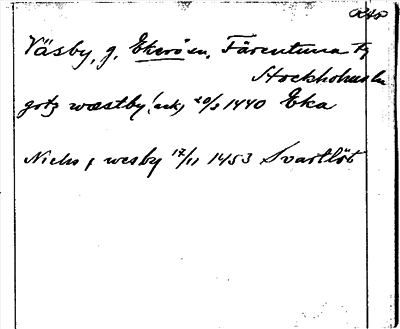 Väsby, g. Ekerö sn, Färentuna
Stockholms län
gotz wæstby (ack) 20/3 1440 Eka
Niclis j wesby 17/11 1453 Svartlöt